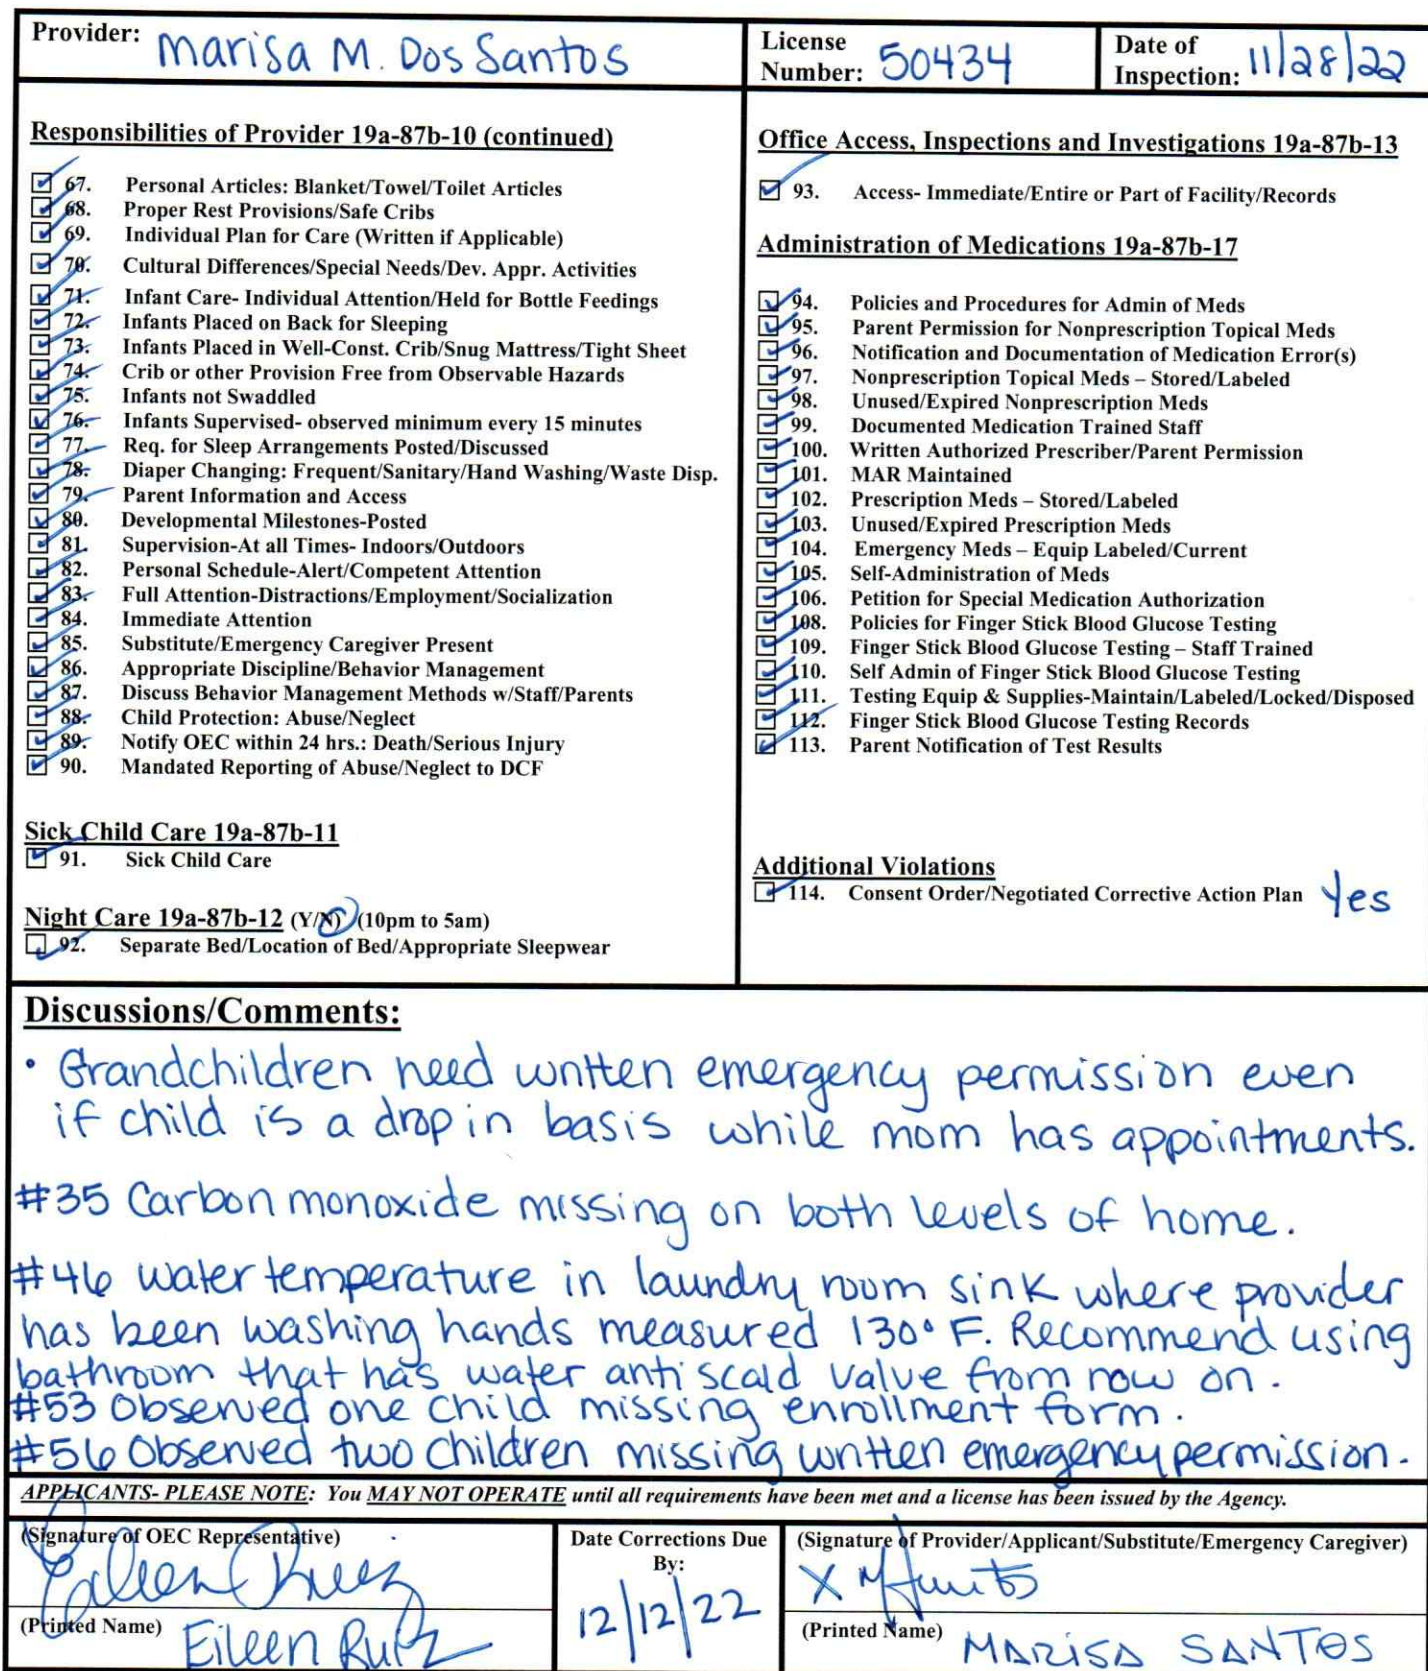 Provider: Marisa M. Dos Santos
License Number: 50434
Date of Inspection: 11/28/22
Responsibilities of Provider 19a-87b-10 (continued)
67. Personal Articles: Blanket/Towel/Toilet Articles
68. Proper Rest Provisions/Safe Cribs
69. Individual Plan for Care (Written if Applicable)
70. Cultural Differences/Special Needs/Dev. Appr. Activities
71. Infant Care- Individual Attention/Held for Bottle Feedings
72. Infants Placed on Back for Sleeping
73. Infants Placed in Well-Const. Crib/Snug Mattress/Tight Sheet
74. Crib or other Provision Free from Observable Hazards
75. Infants not Swaddled
76. Infants Supervised- observed minimum every 15 minutes
77. Req. for Sleep Arrangements Posted/Discussed
78. Diaper Changing: Frequent/Sanitary/Hand Washing/Waste Disp.
79. Parent Information and Access
80. Developmental Milestones-Posted
81. Supervision-At all Times- Indoors/Outdoors
82. Personal Schedule-Alert/Competent Attention
83. Full Attention-Distractions/Employment/Socialization
84. Immediate Attention
85. Substitute/Emergency Caregiver Present
86. Appropriate Discipline/Behavior Management
87. Discuss Behavior Management Methods w/Staff/Parents
88. Child Protection: Abuse/Neglect
89. Notify OEC within 24 hrs.: Death/Serious Injury
90. Mandated Reporting of Abuse/Neglect to DCF
Sick Child Care 19a-87b-11
91. Sick Child Care
Night Care 19a-87b-12 (Y/N) (10pm to 5am)
92. Separate Bed/Location of Bed/Appropriate Sleepwear
Office Access, Inspections and Investigations 19a-87b-13
93. Access- Immediate/Entire or Part of Facility/Records
Administration of Medications 19a-87b-17
94. Policies and Procedures for Admin of Meds
95. Parent Permission for Nonprescription Topical Meds
96. Notification and Documentation of Medication Error(s)
97. Nonprescription Topical Meds – Stored/Labeled
98. Unused/Expired Nonprescription Meds
99. Documented Medication Trained Staff
100. Written Authorized Prescriber/Parent Permission
101. MAR Maintained
102. Prescription Meds – Stored/Labeled
103. Unused/Expired Prescription Meds
104. Emergency Meds – Equip Labeled/Current
105. Self-Administration of Meds
106. Petition for Special Medication Authorization
108. Policies for Finger Stick Blood Glucose Testing
109. Finger Stick Blood Glucose Testing – Staff Trained
110. Self Admin of Finger Stick Blood Glucose Testing
111. Testing Equip & Supplies-Maintain/Labeled/Locked/Disposed
112. Finger Stick Blood Glucose Testing Records
113. Parent Notification of Test Results
Additional Violations
114. Consent Order/Negotiated Corrective Action Plan Yes
Discussions/Comments:
• Grandchildren need written emergency permission even
if child is a drop in basis while mom has appointments.
#35 Carbon monoxide missing on both levels of home.
#46 water temperature in laundry room sink where provider
has been washing hands measured 130° F. Recommend using
bathroom that has water anti scald value from now on.
#53 Observed one child missing enrollment form.
#56 Observed two children missing written emergency permission.
APPLICANTS- PLEASE NOTE: You MAY NOT OPERATE until all requirements have been met and a license has been issued by the Agency.
(Signature of OEC Representative)
Eileen Ruiz
(Printed Name) Eileen Ruiz
Date Corrections Due By:
12/12/22
(Signature of Provider/Applicant/Substitute/Emergency Caregiver)
X
(Printed Name) MARISA SANTOS